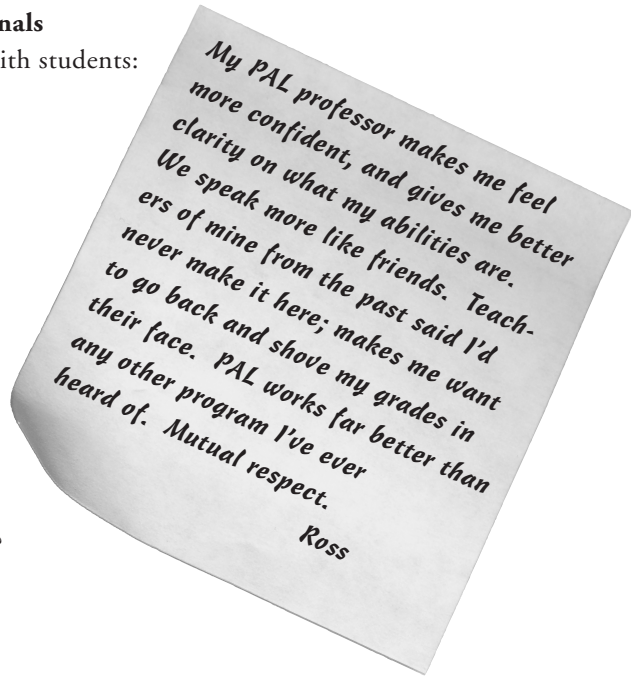 nals
ith students:
My PAL professor makes me feel
more confident, and gives me better
clarity on what my abilities are.
We speak more like friends.  Teach-
ers of mine from the past said I'd
never make it here; makes me want
to go back and shove my grades in
their face.  PAL works far better than
any other program I've ever
heard of.  Mutual respect.
Ross